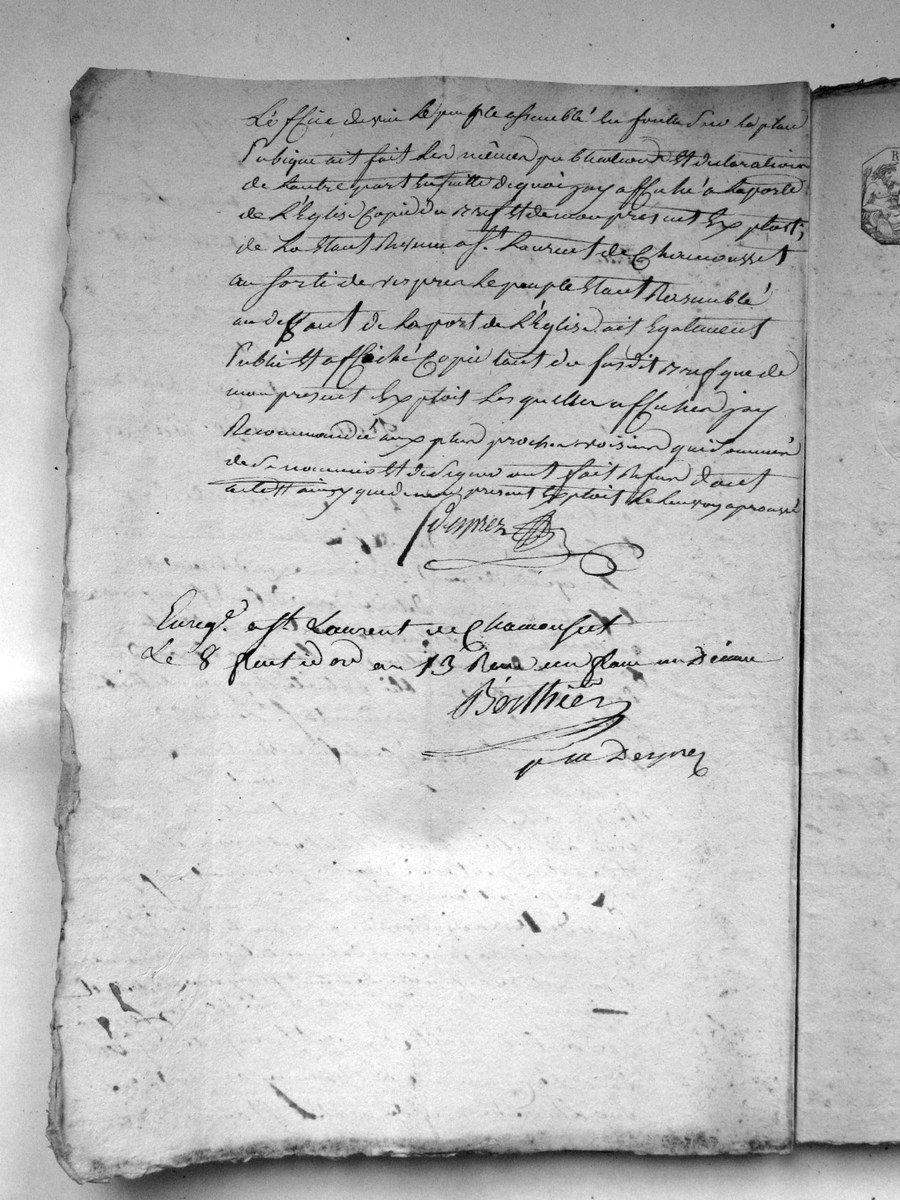 L'office divin le peuple assemblé en foule sur la place
Publique ait fait les mêmes publications et declarations
de L'autre part ensuitte de quoi jay affiché a la porte
de L'Eglise Copie du Bref et de mon present Exploit,
de La étant Revenu a St. Laurent de Chamousset
au sorti de vespres le peuple étant Rassemblé
au devant de la port de L'Eglise ait également
Publié et affiché Copie tant du susdit Bref que de
mon present Exploit Les quelles affiches jay
Recommandé aux plus proches voisins qui sommés
de se nommés et de signé ont fait Refus dont
acte et ainsy que de mon present Exploit
Desprez
Enregé. a St. Laurent de Chamousset
Le 8 an 13 Reçu un franc un Décime
Berthier
Desprez
R